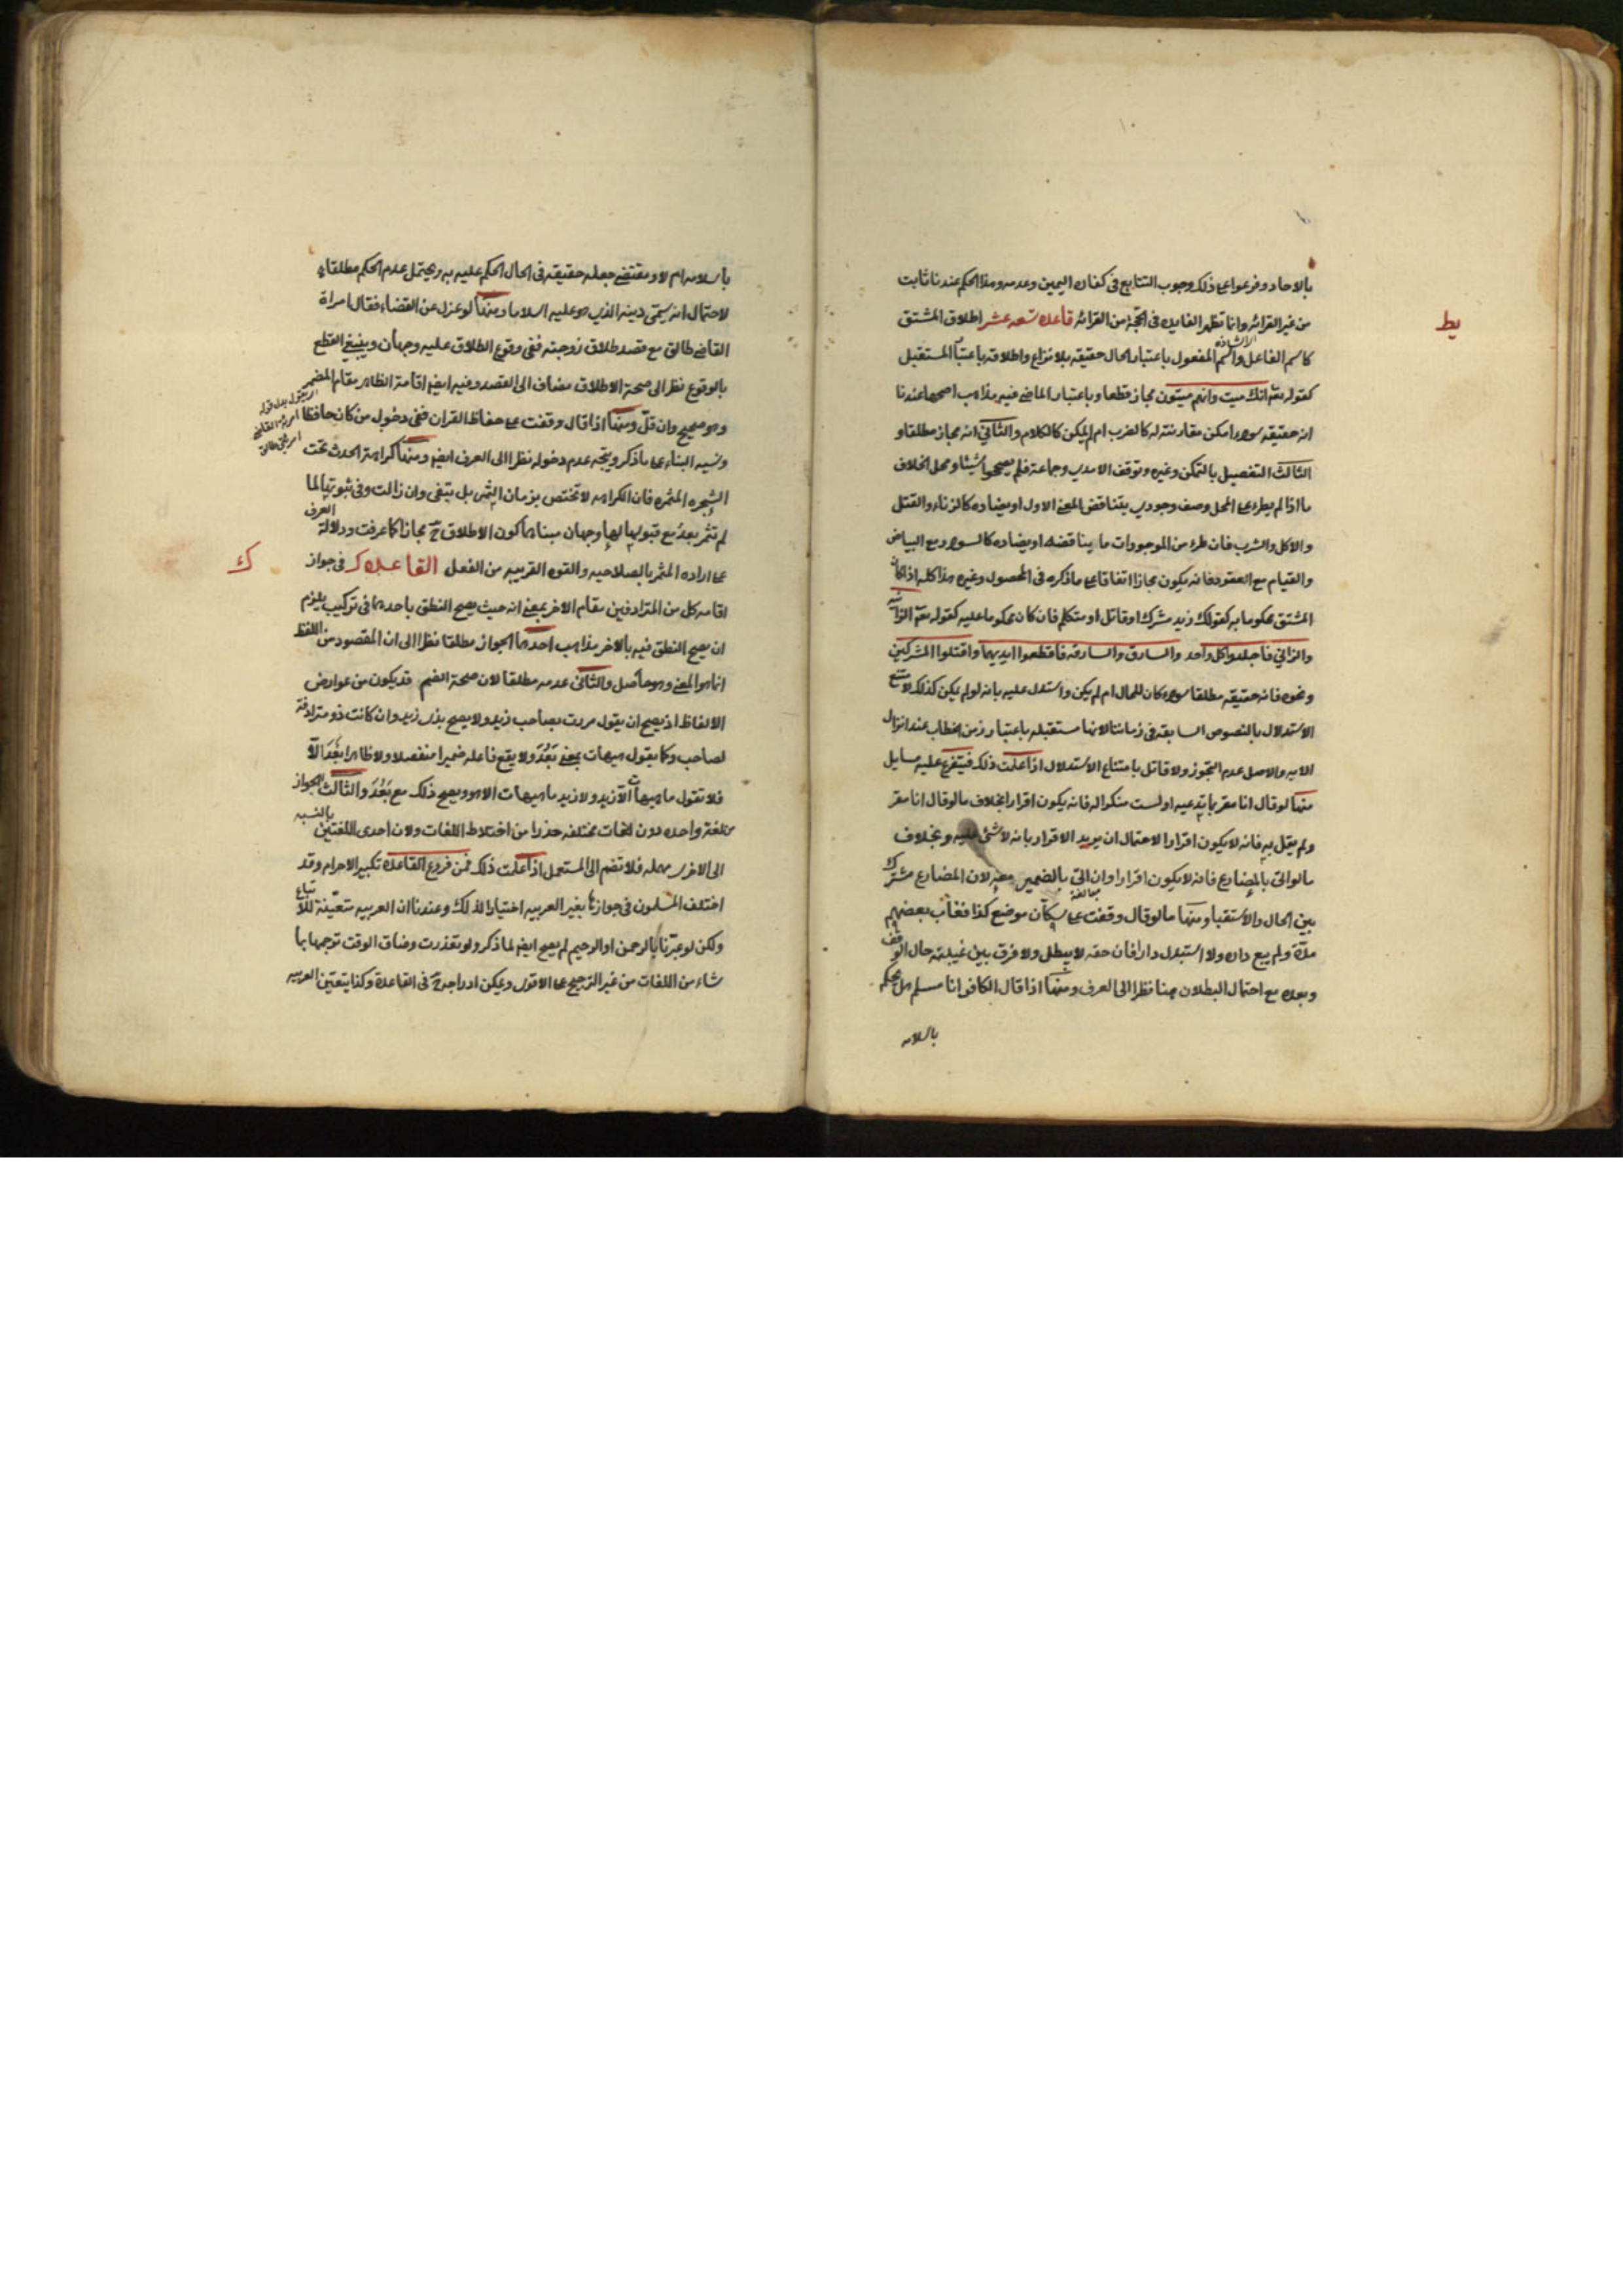 بالاحاد وفرعوا على ذلك وجوب التتابع فى كفارة اليمين وعدمه وهذا الحكم عندنا ثابت
يط
من غير القرائه وانما تظهر الفايده فى الحجة من القرائه قاعده تسعه عشر اطلاق المشتق
كاسم الفاعل واسم المفعول باعتبار الحال حقيقه بلا نزاع واطلاقه باعتبار المستقبل
كقوله تع انك ميت وانهم ميتون مجاز قطعا وباعتبار الماضى فيه مذاهب اصحها عندنا
انه حقيقه سواء امكن مقارنته له كالضرب ام لم يمكن كالكلام والثانى انه مجاز مطلقا و
الثالث التفصيل بالتمكن وغيره وتوقف الامدى وجماعة فلم يصححوا شيئا ومحل الخلاف
ما اذا لم يطرء على المحل وصف وجودى يناقض المعنى الاول او يضاده كالزناء والقتل
والاكل والشرب فان طرء من الموجودات ما يناقضه او يضاده كالسواد مع البياض
والقيام مع القعود فانه يكون مجازا اتفاقا على ما ذكره فى المحصول وغيره هذا كله اذا كان
المشتق محكوما به كقولك زيد مشرك او قاتل او متكلم فان كان محكوما عليه كقوله تع الزانية
والزانى فاجلدوا كل واحد والسارق والسارقه فاقطعوا ايديهما واقتلوا المشركين
ونحوه فانه حقيقه مطلقا سواء كان للحال ام لم يكن واستدل عليه بانه لو لم يكن كذلك لامتنع
الاستدلال بالنصوص السابقه فى زماننا لانها مستقبله باعتبار زمن الخطاب عند انزال
الايه والاصل عدم التجوز ولا قائل بامتناع الاستدلال اذا علمت ذلك فيتفرع عليه مسايل
منها لو قال انا مقر بما تدعيه او لست منكرا له فانه يكون اقرارا بخلاف ما لو قال انا مقر
ولم يقل به فانه لا يكون اقرارا لاحتمال ان يريد الاقرار بانه لا شئ عليه وبخلاف
ما لو اتى بالمضارع فانه لا يكون اقرارا وان اتى بالضمير معه لان المضارع مشترك
بين الحال والاستقبال ومنها ما لو قال وقفت على سكان موضع كذا فغاب بعضهم
مدة ولم يبع داره ولا استبدل دارا فان حقه لا يبطل ولا فرق بين غيبته حال الوقف
وبعده مع احتمال البطلان هنا نظرا الى العرف ومنها اذا قال الكافر انا مسلم هل يحكم
باسلامه
باسلامه ام لا ومقتضى جعله حقيقه فى الحال الحكم عليه به ويحتمل عدم الحكم مطلقا
لاحتمال انه يسمى دينه الذى هو عليه اسلاما ومنها لو عزل عن القضاء فقال امراة
القاضى طالق مع قصد طلاق زوجته ففى وقوع الطلاق عليه وجهان وينبغى القطع
بالوقوع نظرا الى صحة الاطلاق مضاف الى القصد وفيه ايضا اقامة الظاهر مقام المضمر
وهو صحيح وان قل ومنها اذا قال وقفت على حفاظ القران ففى دخول من كان حافظا
ونسيه البناء على ما ذكر ويتجه عدم دخوله نظرا الى العرف ايضا ومنها كراهة الحدث تحت
الشجره المثمره فان الكراهه لا تختص بزمان الثمر بل تبقى وان زالت وفى ثبوتها لما
لم تثمر بعد مع قبولها لها وجهان مبناهما كون الاطلاق ح مجازا كما عرفت ودلالة العرف
على اراده المثمر بالصلاحيه والقوه القريبه من الفعل القاعده ك فى جواز
ك
اقامه كل من المترادفين مقام الاخر بمعنى انه حيث يصح النطق باحدهما فى تركيب يلزم
ان يصح النطق فيه بالاخر مذاهب احدها الجواز مطلقا نظرا الى ان المقصود من اللفظ
انما هو المعنى وهو حاصل والثانى عدمه مطلقا لان صحة الضم قد يكون من عوارض
الالفاظ اذ يصح ان يقول مررت بصاحب زيد ولا يصح بذى زيد وان كانت ذو مترادفة
لصاحب وكما يقول هيهات بمعنى بَعُدَ ولا يقع فاعله ضميرا منفصلا ولا ظاهرا بعد الا
فلا تقول ما هيهات الا زيد ولا زيد ما هيهات الا هو ويصح ذلك مع بَعُدَ والثالث الجواز
من لغة واحده دون لغات مختلفه حذرا من اختلاط اللغات ولان احدى اللغتين بالنسبه
الى الاخرى مهمله فلا تضم الى المستعمل اذا علمت ذلك فمن فروع القاعدة تكبير الاحرام وقد
اختلف المسلمون فى جوازها بغير العربيه اختيارا لذلك وعندنا ان العربيه متعينة للاتباع
ولكن لو عبرنا بالرحمن او الرحيم لم يصح ايضا لما ذكر ولو تعذرت وضاق الوقت ترجمها بما
شاء من اللغات من غير الترجيح على الاقوى ويمكن ادراجه ح فى القاعدة وكذا يتعين العربيه